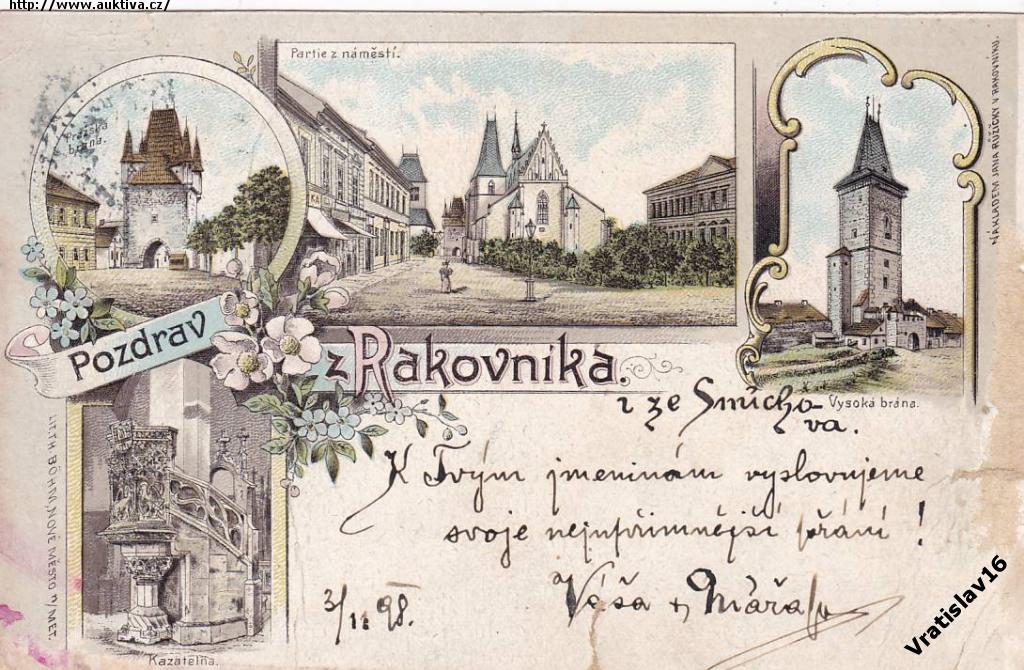 http://www.auktiva.cz/
Partie z náměstí.
Pražská
brána.
NÁKLADEM JANA RŮŽIČKY V RAKOVNÍKU.
Pozdrav
z Rakovníka.
Vysoká brána.
i ze Smícho-
va.
K Tvým jmeninám vyslovujeme
svoje nejupřimnější přání!
Váša + Mářa
3/11 98.
LITH. BÖHM, NOVÉ MĚSTO n/MET.
Kazatelna.
Vratislav16